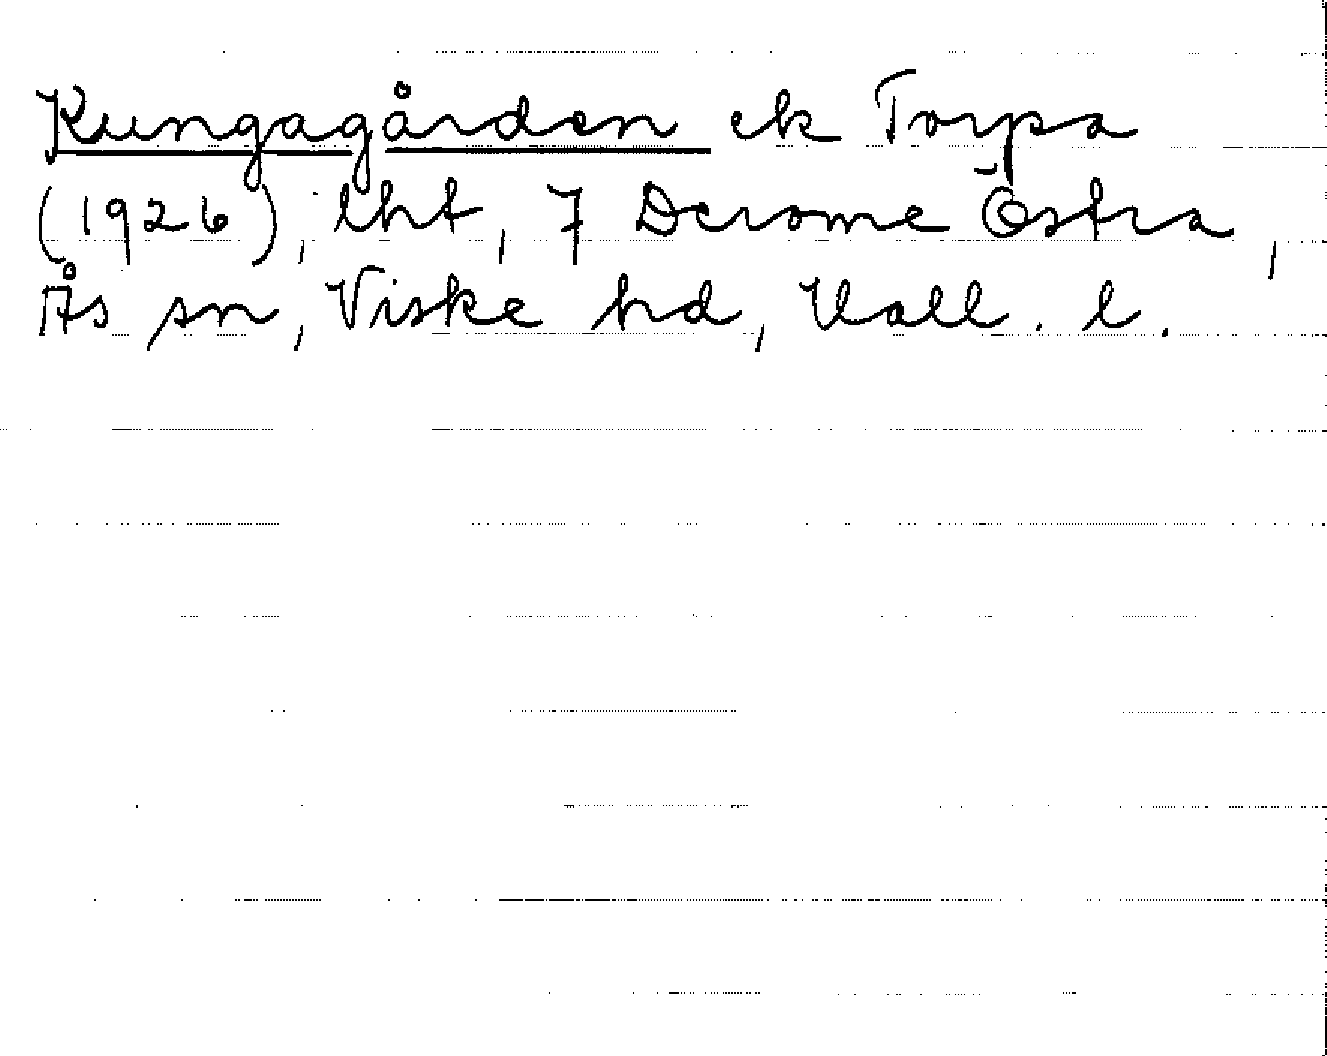 Kungagården ek Torpa
(1926), lht, 7 Derome Östra,
Ås sn, Viske hd, Hall. l.